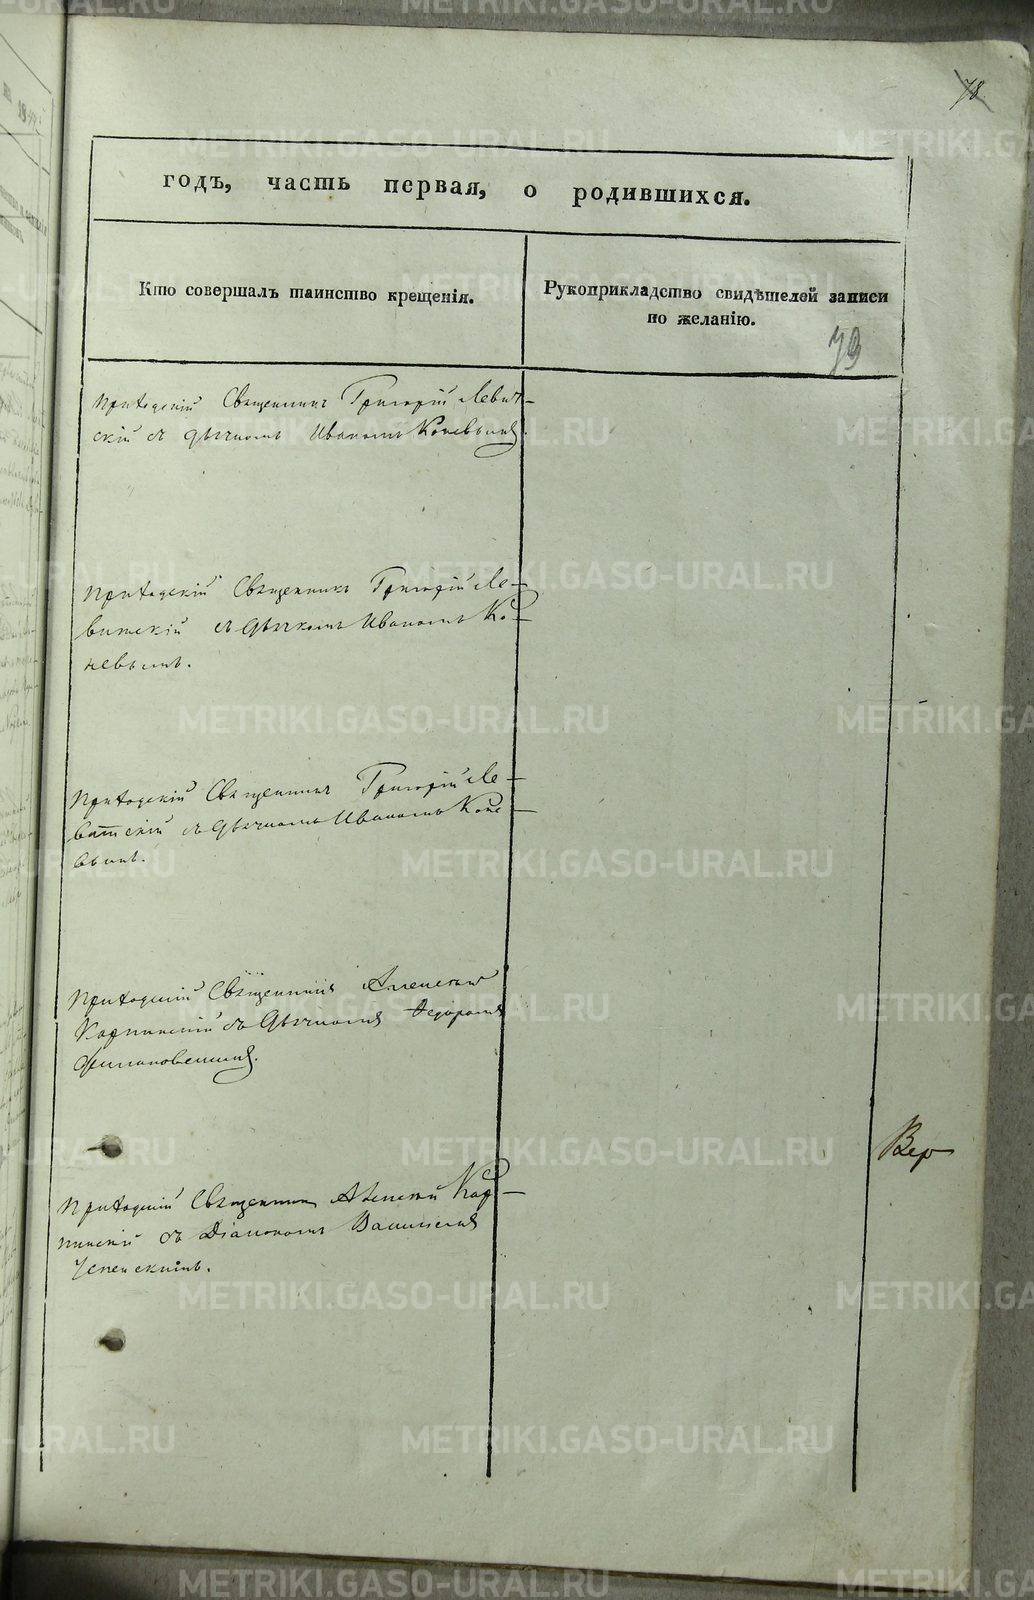 METRIKI.GASO-URAL.RU
78
годъ, часть первая, о родившихся.
Кто совершалъ таинство крещенія.
Рукоприкладство свидѣтелей записи
по желанію.
79
Приходскій Священникъ Григорій Левит-
скій съ дьячкомъ Иваномъ Коневымъ
Приходскій Священникъ Григорій Ле-
витскій съ Дьячкомъ Иваномъ Ко-
невымъ.
Приходскій Священникъ Григорій Ле-
витскій съ Дьячкомъ Иваномъ Коне-
вымъ.
Приходскій Священникъ Алексей
Карпинскій съ Дьячкомъ Федоромъ
Приходскій Священникъ Алексей Кар-
пинскій съ Діакономъ Василіемъ
Успенскимъ.
Вер